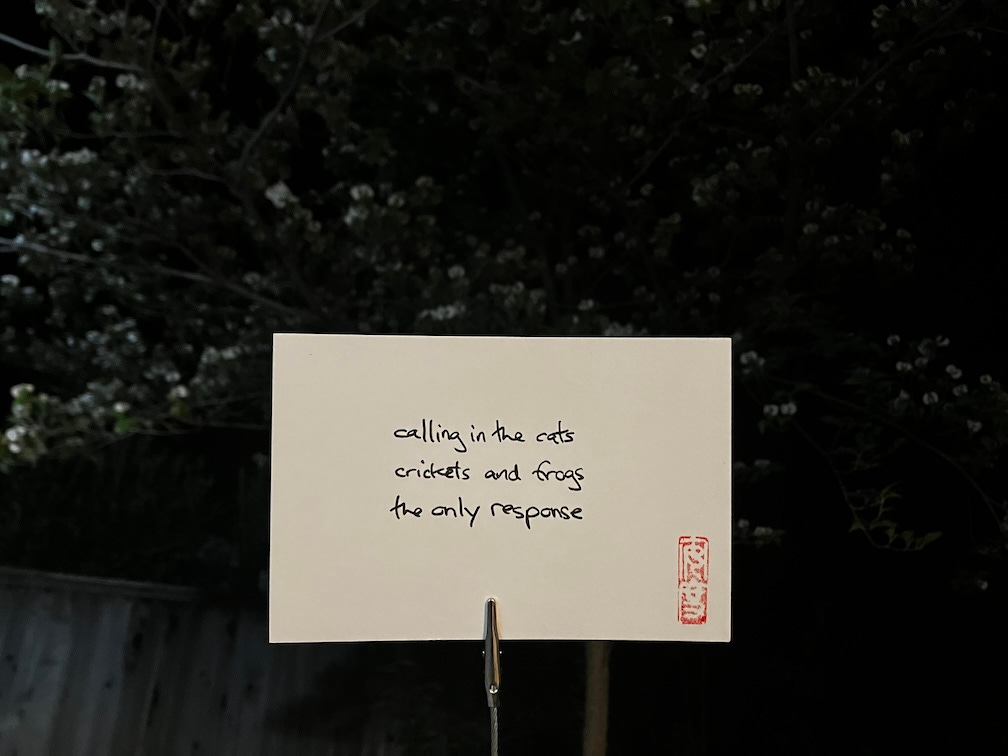 calling in the cats
crickets and frogs
the only response